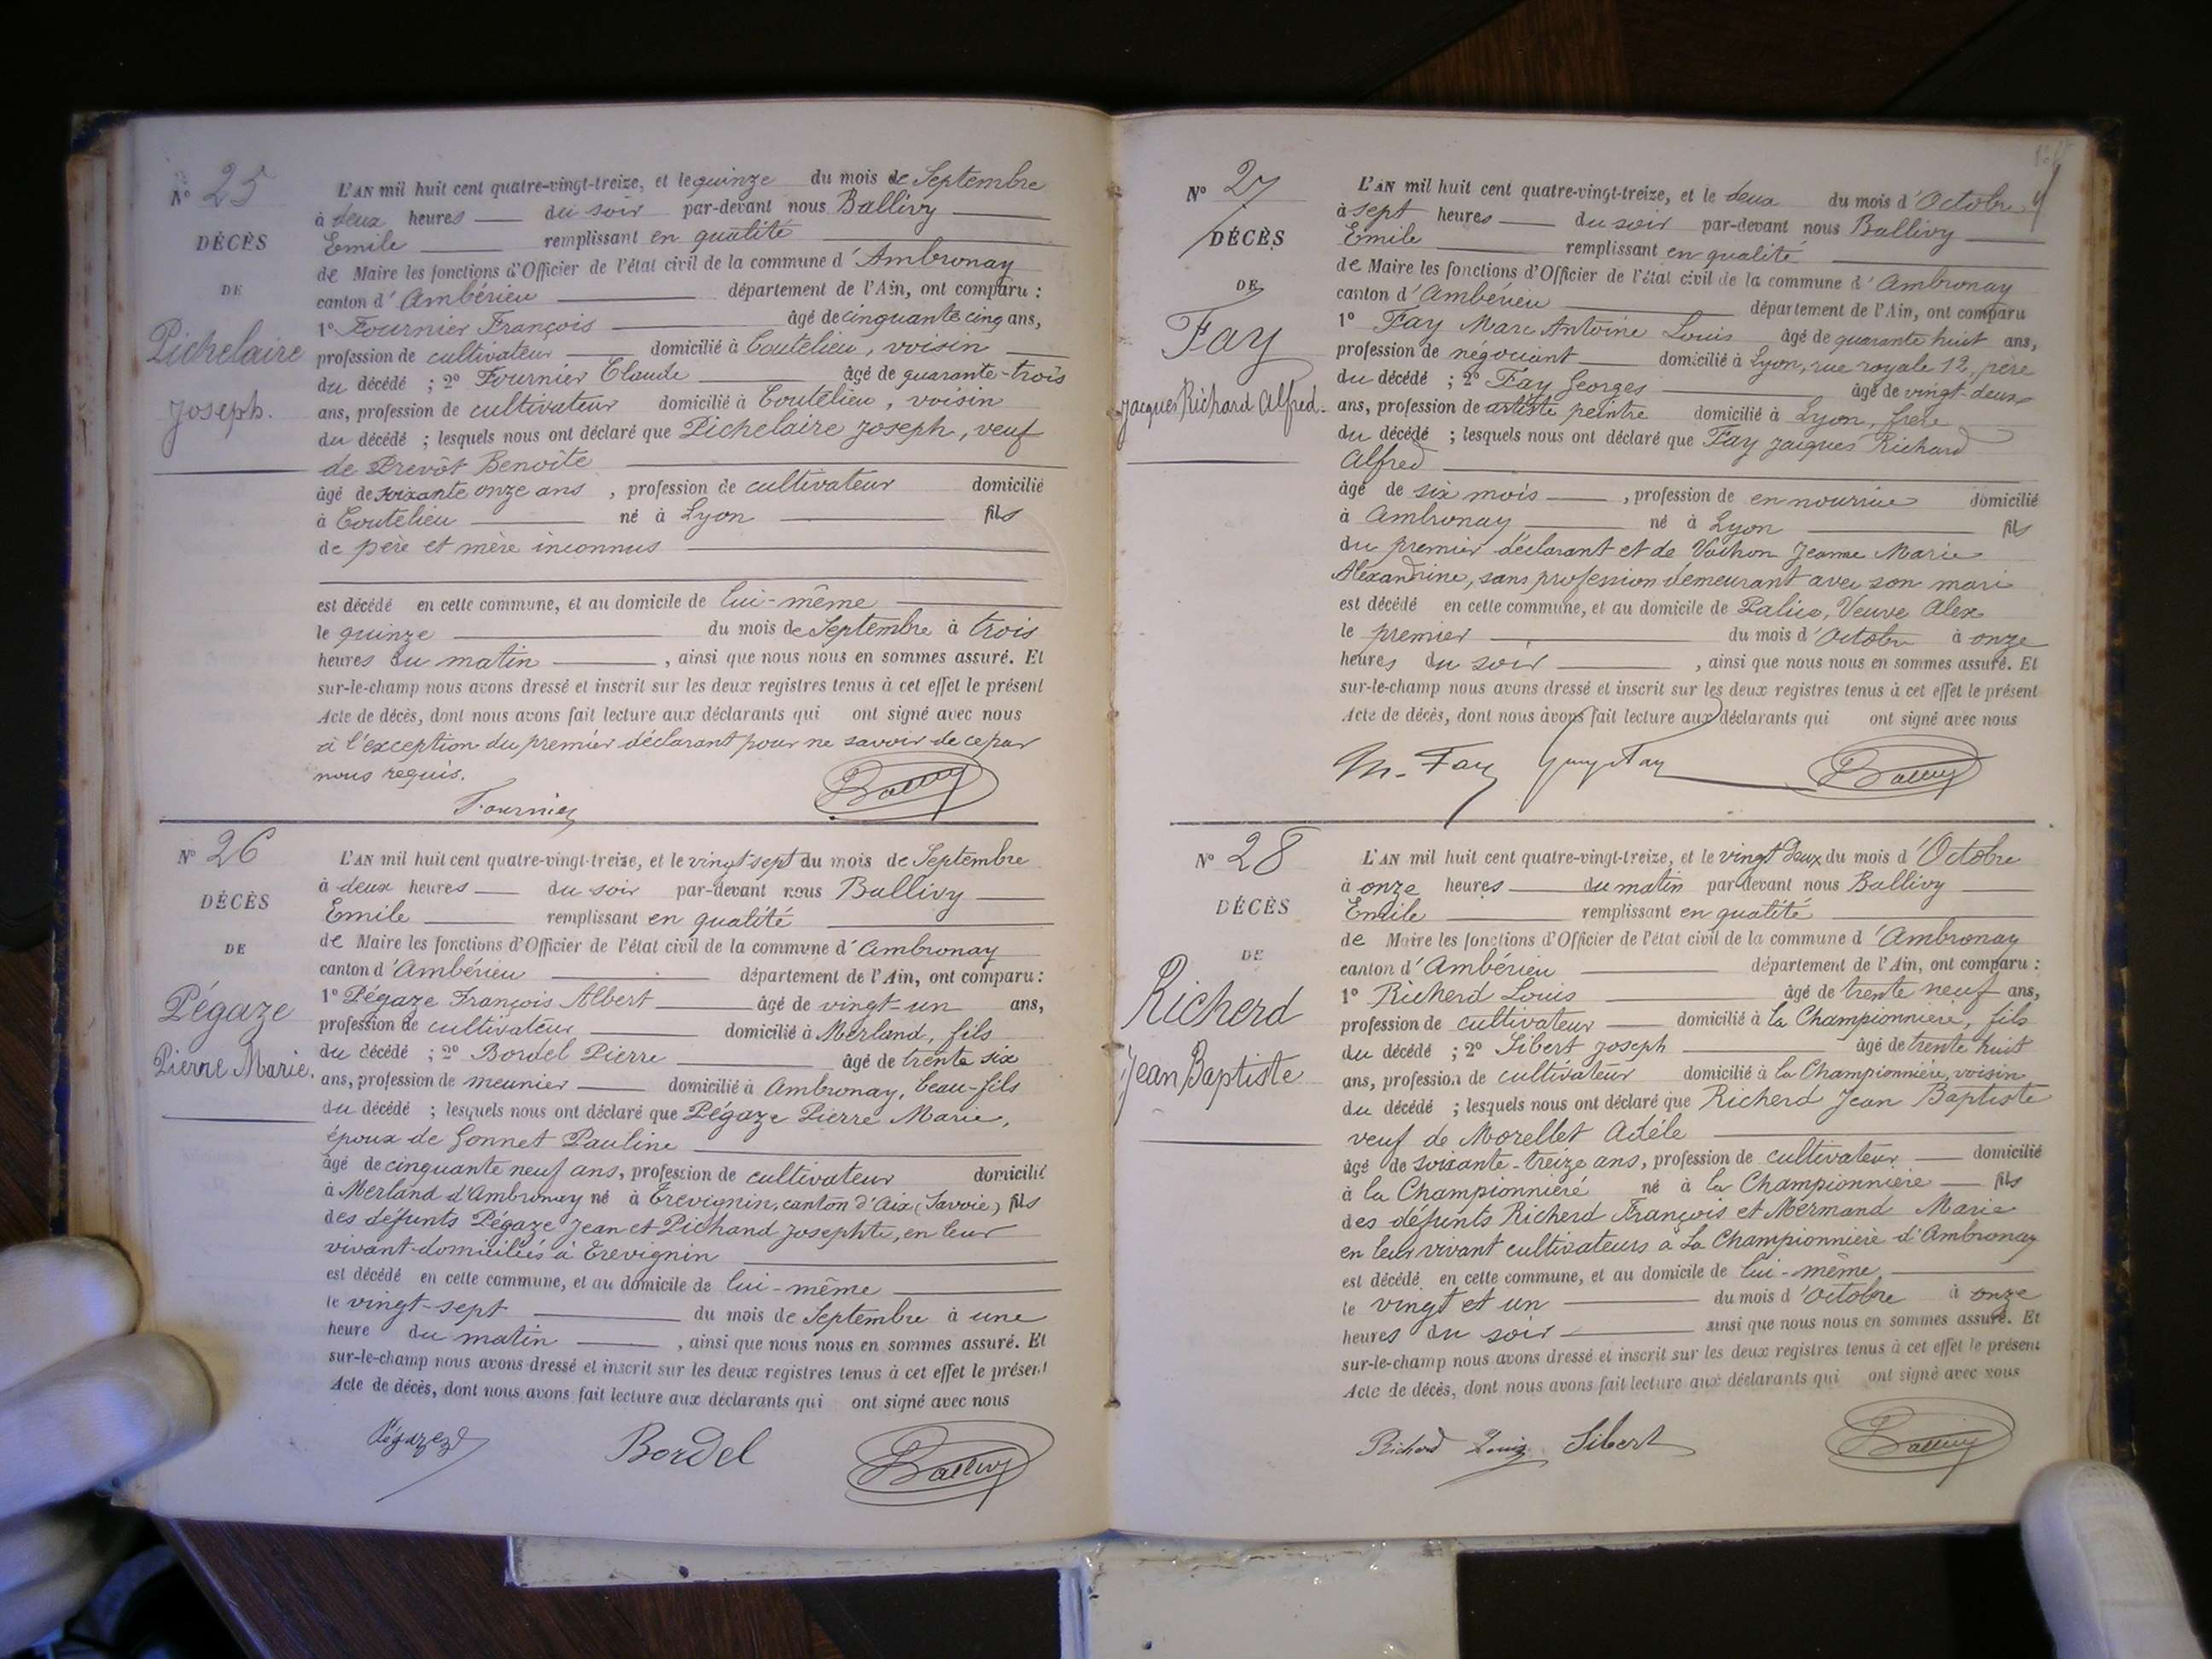 N° 25
DÉCÈS
DE
Pichelaire
Joseph.
L'AN mil huit cent quatre-vingt-treize, et le quinze du mois de Septembre
à deux heures du soir par-devant nous Ballivy
Emile remplissant en qualité
de Maire les fonctions d'Officier de l'état civil de la commune d'Ambronay
canton d'Ambérieu département de l'Ain, ont comparu :
1° Fournier François âgé de cinquante cinq ans,
profession de cultivateur domicilié à Coutelieu, voisin
du décédé ; 2° Fournier Claude âgé de quarante-trois
ans, profession de cultivateur domicilié à Coutelieu, voisin
du décédé ; lesquels nous ont déclaré que Pichelaire Joseph, veuf
de Prevôt Benoîte
âgé de soixante onze ans, profession de cultivateur domicilié
à Coutelieu né à Lyon fils
de père et mère inconnus
est décédé en cette commune, et au domicile de lui-même
le quinze du mois de Septembre à trois
heures du matin, ainsi que nous nous en sommes assuré. Et
sur-le-champ nous avons dressé et inscrit sur les deux registres tenus à cet effet le présent
Acte de décès, dont nous avons fait lecture aux déclarants qui ont signé avec nous
à l'exception du premier déclarant pour ne savoir de ce par
nous requis.
Fournier Ballivy
N° 26
DÉCÈS
DE
Pégaze
Pierre Marie.
L'AN mil huit cent quatre-vingt-treize, et le vingt-sept du mois de Septembre
à deux heures du soir par-devant nous Ballivy
Emile remplissant en qualité
de Maire les fonctions d'Officier de l'état civil de la commune d'Ambronay
canton d'Ambérieu département de l'Ain, ont comparu :
1° Pégaze François Albert âgé de vingt-un ans,
profession de cultivateur domicilié à Merland, fils
du décédé ; 2° Bordel Pierre âgé de trente six
ans, profession de meunier domicilié à Ambronay, beau-fils
du décédé ; lesquels nous ont déclaré que Pégaze Pierre Marie,
époux de Gonnet Pauline
âgé de cinquante neuf ans, profession de cultivateur domicilié
à Merland d'Ambronay né à Trevignin, canton d'Aix (Savoie) fils
des défunts Pégaze Jean et Pichand Josephte, en leur
vivant domiciliés à Trevignin
est décédé en cette commune, et au domicile de lui-même
le vingt-sept du mois de Septembre à une
heure du matin, ainsi que nous nous en sommes assuré. Et
sur-le-champ nous avons dressé et inscrit sur les deux registres tenus à cet effet le présent
Acte de décès, dont nous avons fait lecture aux déclarants qui ont signé avec nous
Bordel Ballivy
N° 27
DÉCÈS
DE
Fay
Jacques Richard Alfred.
L'AN mil huit cent quatre-vingt-treize, et le deux du mois d'Octobre
à sept heures du soir par-devant nous Ballivy
Emile remplissant en qualité
de Maire les fonctions d'Officier de l'état civil de la commune d'Ambronay
canton d'Ambérieu département de l'Ain, ont comparu
1° Fay Marc Antoine Louis âgé de quarante huit ans,
profession de négociant domicilié à Lyon, rue royale 12, père
du décédé ; 2° Fay Georges âgé de vingt-deux
ans, profession de artiste peintre domicilié à Lyon, frère
du décédé ; lesquels nous ont déclaré que Fay Jacques Richard
Alfred
âgé de six mois, profession de en nourrice domicilié
à Ambronay né à Lyon fils
du premier déclarant et de Vachon Jeanne Marie
Alexandrine, sans profession demeurant avec son mari
est décédé en cette commune, et au domicile de Palice, Veuve Alex
le premier du mois d'Octobre à onze
heures du soir, ainsi que nous nous en sommes assuré. Et
sur-le-champ nous avons dressé et inscrit sur les deux registres tenus à cet effet le présent
Acte de décès, dont nous avons fait lecture aux déclarants qui ont signé avec nous
M. Fay Ballivy
N° 28
DÉCÈS
DE
Richerd
Jean Baptiste
L'AN mil huit cent quatre-vingt-treize, et le vingt deux du mois d'Octobre
à onze heures du matin par-devant nous Ballivy
Emile remplissant en qualité
de Maire les fonctions d'Officier de l'état civil de la commune d'Ambronay
canton d'Ambérieu département de l'Ain, ont comparu :
1° Richerd Louis âgé de trente neuf ans,
profession de cultivateur domicilié à la Championnière, fils
du décédé ; 2° Sibert Joseph âgé de trente huit
ans, profession de cultivateur domicilié à la Championnière, voisin
du décédé ; lesquels nous ont déclaré que Richerd Jean Baptiste
veuf de Morellet Adéle
âgé de soixante-treize ans, profession de cultivateur domicilié
à la Championniéré né à la Championnière fils
des défunts Richerd François et Mermand Marie
en leur vivant cultivateurs à La Championnière d'Ambronay
est décédé en cette commune, et au domicile de lui-même
le vingt et un du mois d'Octobre à onze
heures du soir ainsi que nous nous en sommes assuré. Et
sur-le-champ nous avons dressé et inscrit sur les deux registres tenus à cet effet le présent
Acte de décès, dont nous avons fait lecture aux déclarants qui ont signé avec nous
Richerd Louis Sibert Ballivy